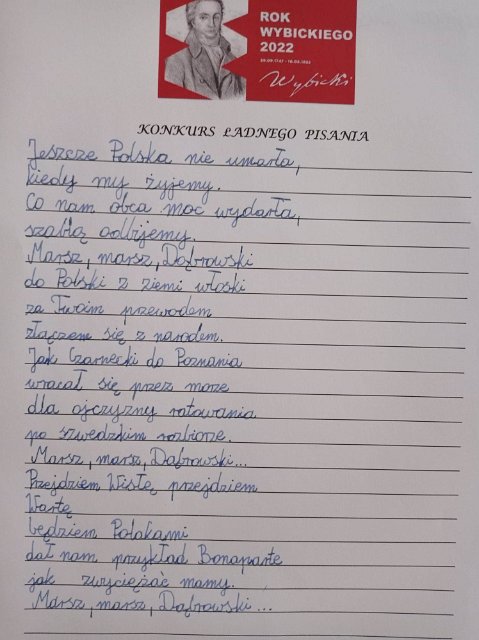 ROK
WYBICKIEGO
2022
Wybicki
KONKURS ŁADNEGO PISANIA
Jeszcze Polska nie umarła,
kiedy my żyjemy.
Co nam obca moc wydarła,
szablą odbijemy.
Marsz, marsz, Dąbrowski
do Polski z ziemi włoski
za Twoim przewodem
złączem się z narodem.
Jak Czarnecki do Poznania
wracał się przez może
dla ojczyzny ratowania
po szwedzkim rozbiorze.
Marsz, marsz, Dąbrowski...
Przejdziem Wisłę przejdziem
Wartę
będziem Polakami
dał nam przykład Bonaparte
jak zwyciężać mamy.
Marsz, marsz, Dąbrowski...